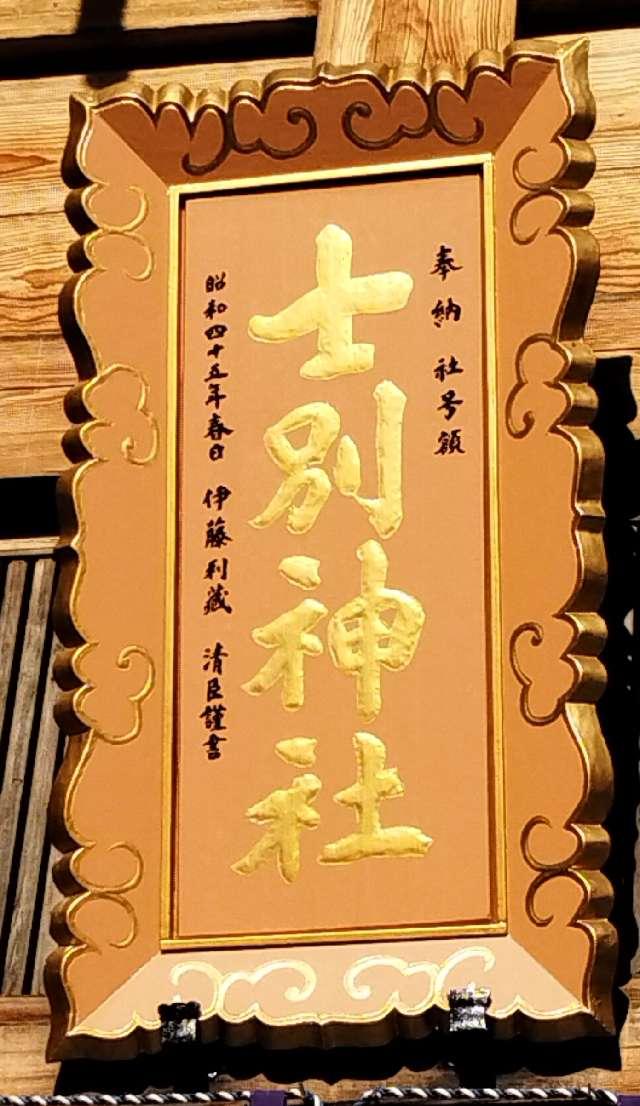 奉納 社号額
士別神社
昭和四十五年春日 伊藤利蔵 清臣謹書